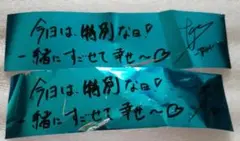 今日は、特別な日♡
一緒にすごせて幸せ〜♡
今日は、特別な日♡
一緒にすごせて幸せ〜♡